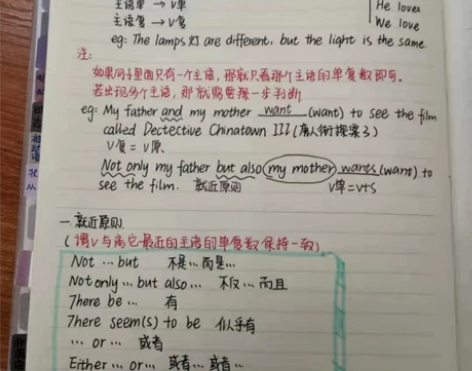 主语单 → V单
He loves
主语复 → V复
We love
eg: The lamps 灯 are different, but the light is the same
注:
如果句子里面只有一个主语,那就只看那个主语的单复数即可。
若出现多个主语,那就需要进一步判断
eg: My father and my mother want (want) to see the film
called Dectective Chinatown III (唐人街探案3)
V复 = V原.
Not only my father but also (my mother) wants (want) to
see the film. 就近原则 V单=v+s
一.就近原则.
(谓V与离它最近的主语的单复数保持一致)
Not … but 不是…而是…
Not only … but also … 不仅…而且
There be … 有
There seem(s) to be 似乎有
… or … 或者
Either … or … 或者…或者…